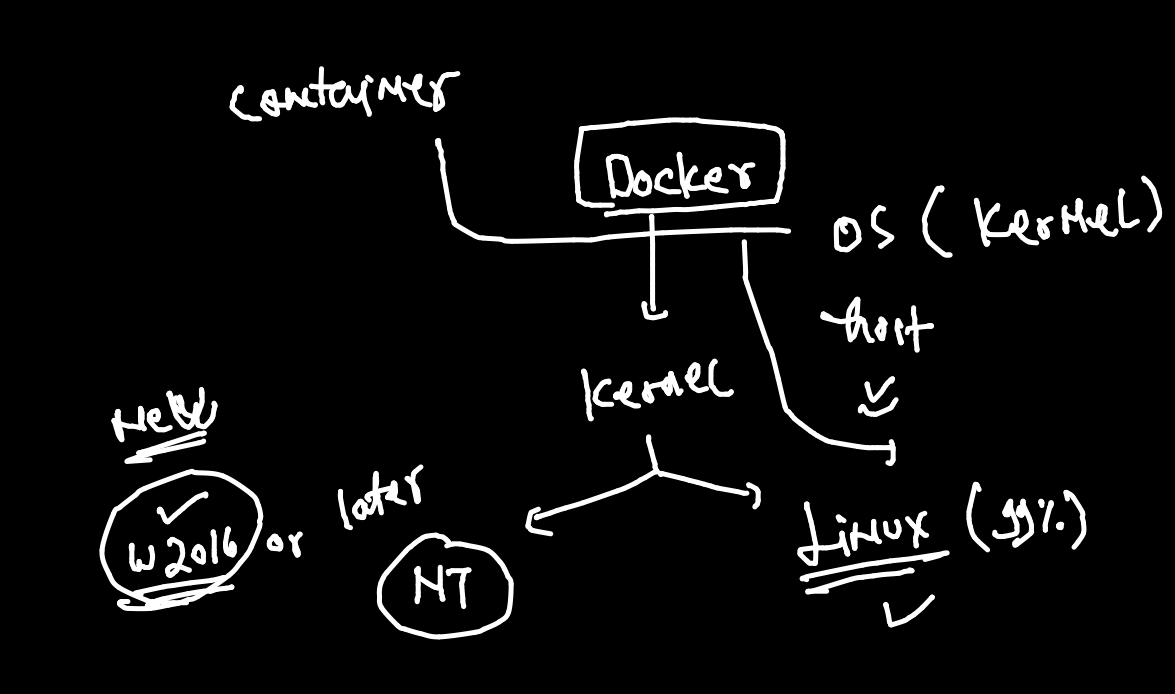 container
Docker
OS (Kernel)
host
Kernel
New
W2016 or later
NT
Linux (99%)